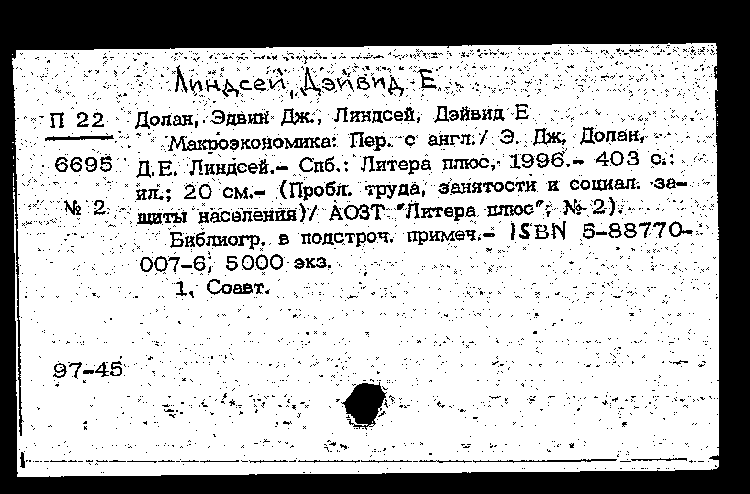 Линдсей, Дэйвид Е
П 22 Долан, Эдвин Дж., Линдсей, Дэйвид Е
Макроэкономика: Пер. с англ./ Э. Дж. Долан,
6695 Д.Е. Линдсей.- Спб.: Литера плюс, 1996.- 403 с.:
ил.; 20 см.- (Пробл. труда, занятости и социал. за-
№ 2 щиты населения)/ АОЗТ "Литера плюс"; № 2).
Библиогр. в подстроч. примеч.- ISBN 5-88770-
007-6, 5000 экз.
1. Соавт.
97-45